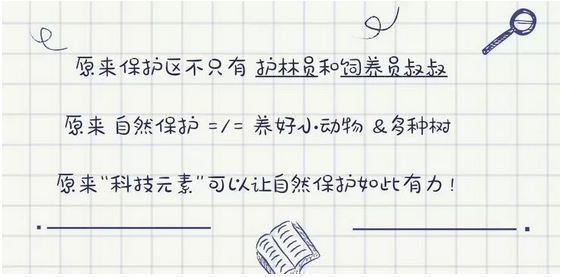 原来保护区不只有 护林员和饲养员叔叔
原来 自然保护 =/= 养好小动物 &多种树
原来“科技元素”可以让自然保护如此有力！